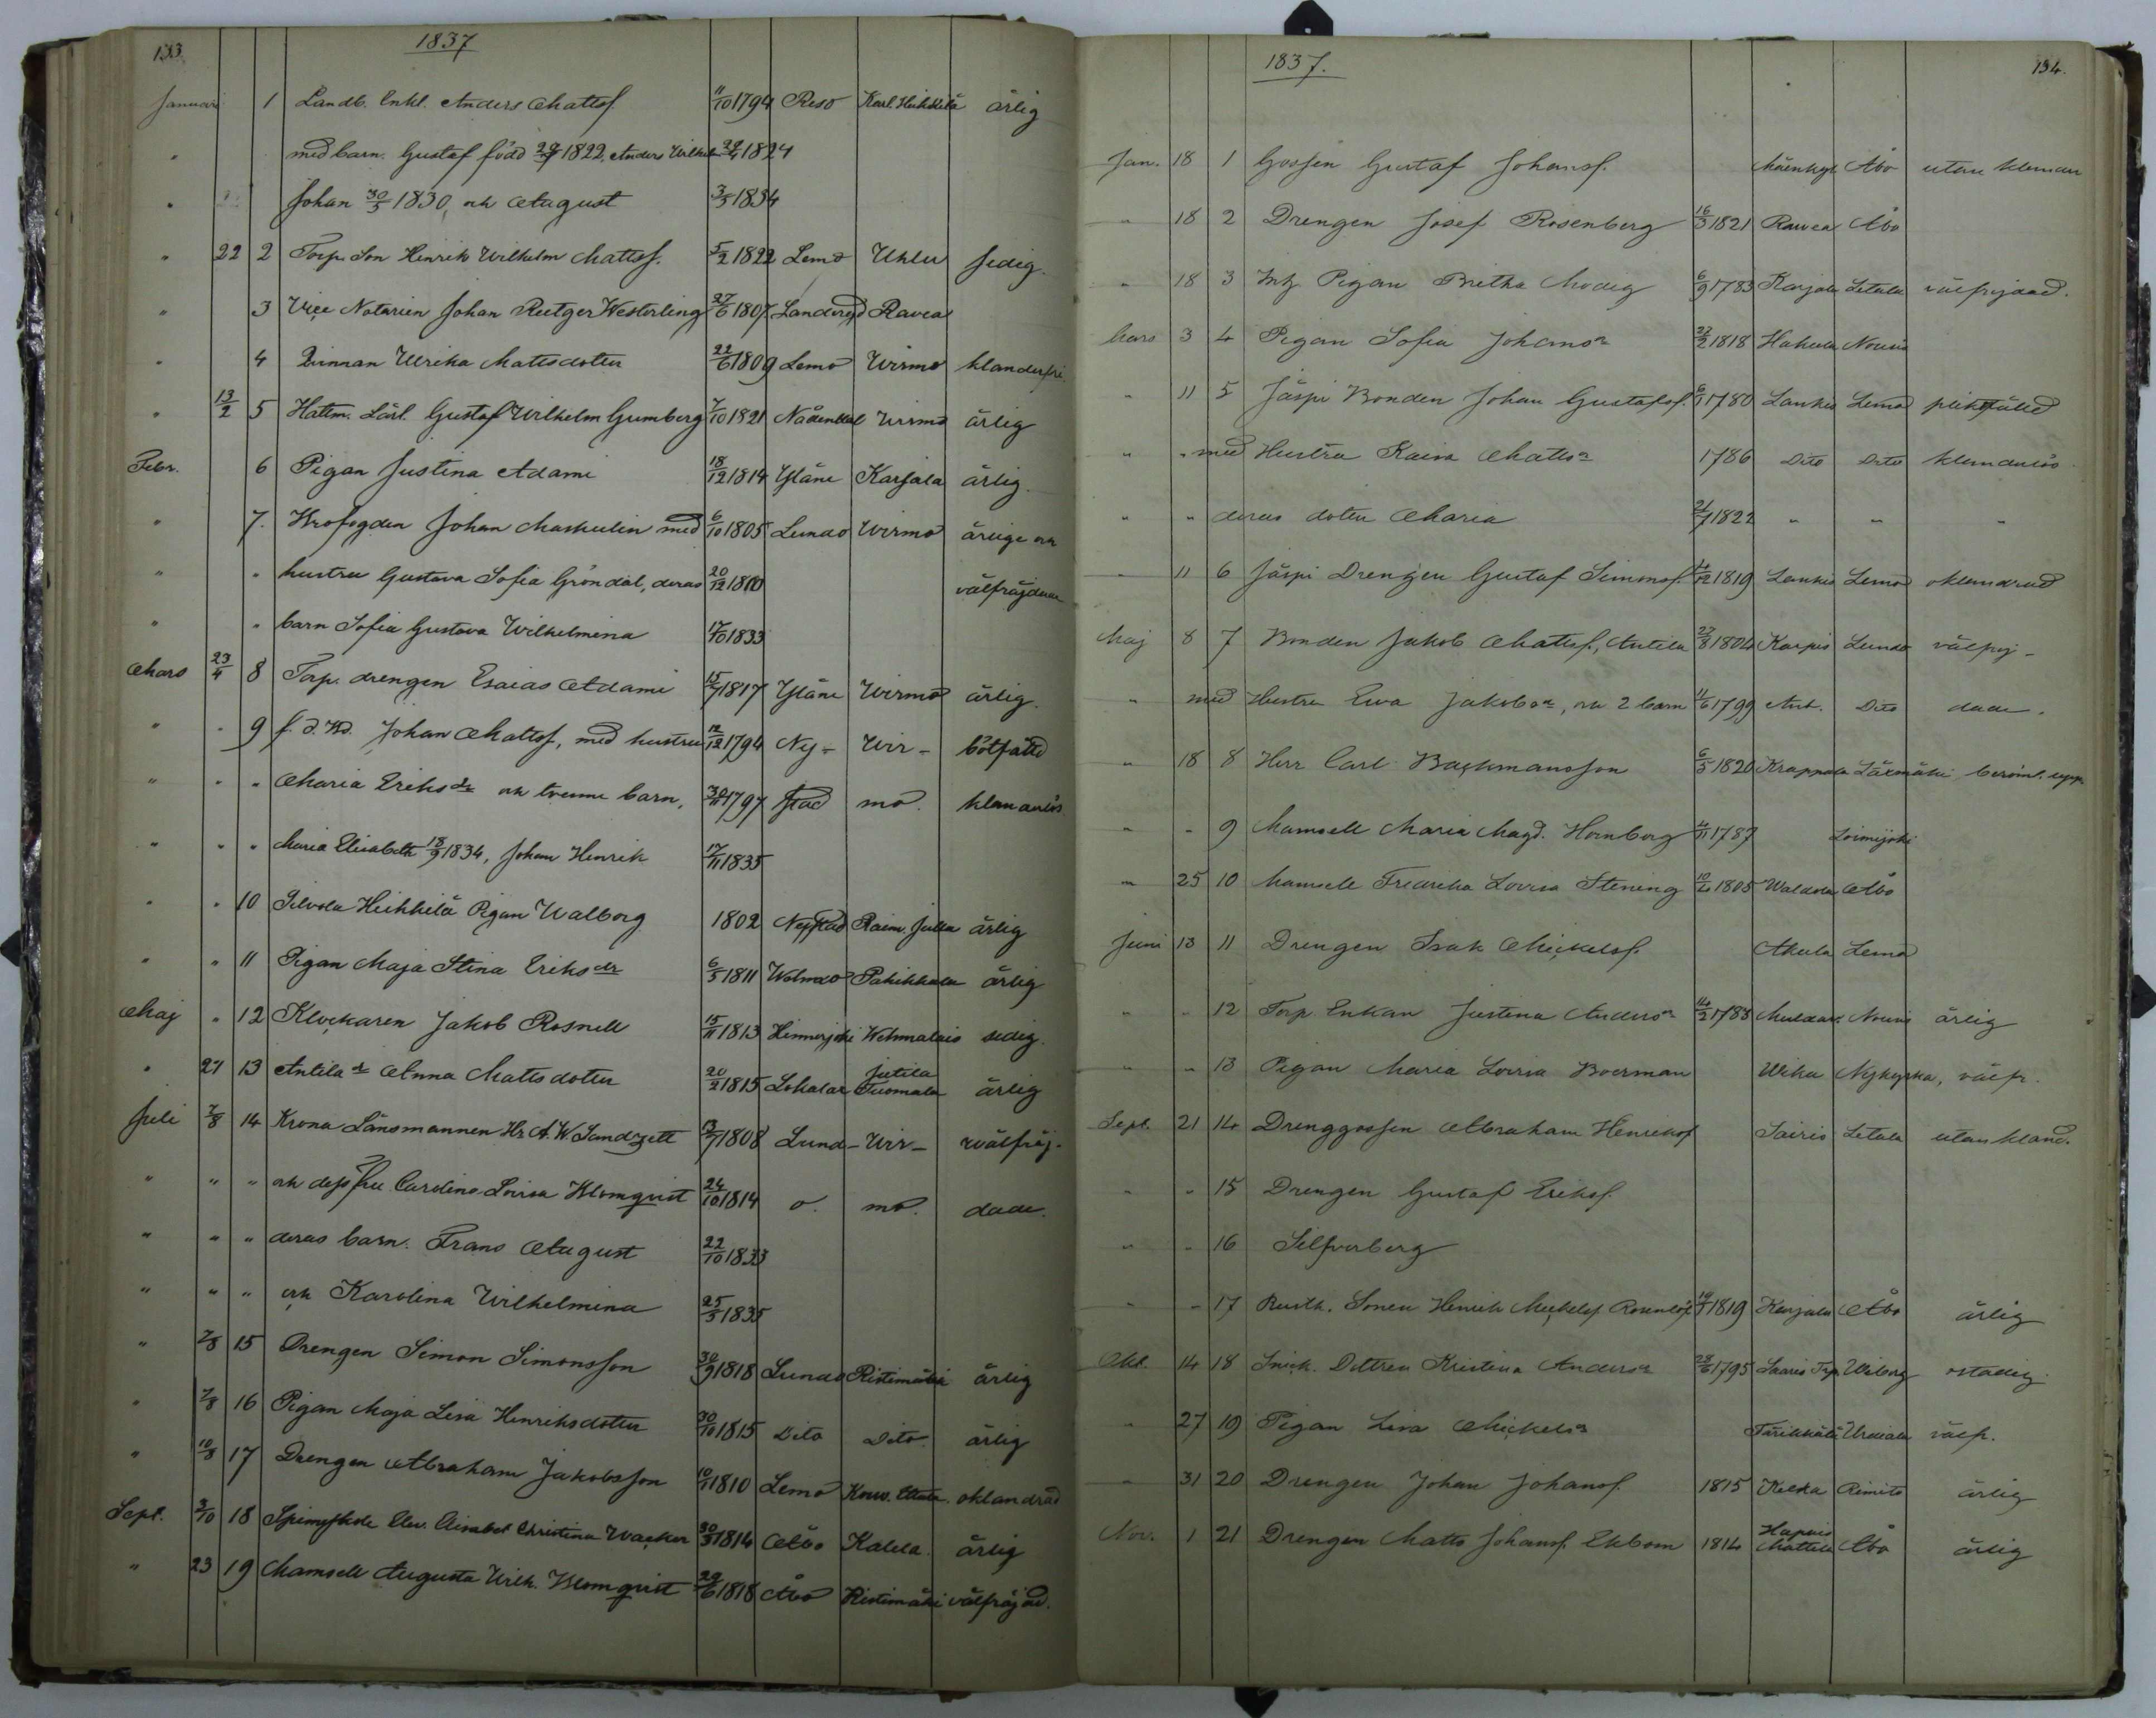 133.
1837
Januari 1 Landb. Enkl. Anders Mattsf. 11/10 1794 Reso Karl. Heikkilä ärlig
" med barn. Gustaf född 1822, Anders Wilhelm 1824
" Johan 30/5 1830, och August 3/5 1834
" 22 2 Torp. Son Henrik Wilhelm Mattsf. 5/2 1822 Lemo Uhlu sedig.
" 3 Vice Notarien Johan Rutger Westerling 27/6 1807 Ravea
" 4 Qvinnan Ulrika Mattsdotter 22/6 1809 Lemo Wirmo klanderfri
" 13/2 5 Hattm. Lärl. Gustaf Wilhelm Gumberg 7/10 1821 Nådendal Wirmo ärlig
Febr. 6 Pigan Justina Adami 18/12 1814 Yläne Karjala ärlig.
" 7. Krofogden Johan Maskulin med 6/10 1805 Lundo Wirmo ärlige och
" " hustru Gustava Sofia Gröndal, deras 20/12 1800 välfräjdade
" " barn Sofia Gustava Wilhelmina 17/10 1833
Mars 23/4 8 Torp. drengen Esaias Adami 15/7 1817 Yläne Wirmo ärlig.
" " 9 f. d. Johan Mattsf, med hustru 12/12 1794 Ny- Wir- bötfälld
" " " Maria Eriksdr och tvenne barn, 30/11 1797 stad mo. klanderlös.
" " " Maria Elisabeth 18/9 1834, Johan Henrik 17/11 1835
" " 10 Silvola Heikkilä Pigan Walborg 1802 Nystad Raim. Julla ärlig
" " 11 Pigan Maja Stina Eriksdr 6/5 1811 Wehmo Pahikkala ärlig
Maj " 12 Klockaren Jakob Rosnell 15/11 1813 Hinnerjoki Wehmalais sedig.
" 21 13 Antila dr Anna Mattsdotter 20/2 1815 Lokalax Jutila Tuomala ärlig
Juli 7/8 14 Krono Länsmannen Hr A. W. Sandzett 13/7 1808 Lund- Wir- wälfräj-
" " " och dess fru Carolina Lovisa Blomqvist 24/10 1814 o. mo. dade.
" " " deras barn. Frans August 22/10 1833
" " " och Karolina Wilhelmina 25/5 1835
" 7/8 15 Drengen Simon Simonsson 30/9 1818 Lundo Ristimäki ärlig
" 7/8 16 Pigan Maja Lisa Henriksdotter 30/10 1815 Dito Dito. ärlig
" 10/8 17 Drengen Abraham Jakobsson 1810 Lemo oklandrad
Sept. 3/10 18 Christina Wacker 1814 Åbo Kalela. ärlig
" 23 19 Mamsell Augusta Wilh. Blomqvist 29/6 1818 Åbo Ristimäki välfräjdad.
134.
1837.
Jan. 18 1 Gossen Gustaf Johansf. Åbo utan klander
" 18 2 Drengen Josef Rosenberg 16/3 1821 Ravea Åbo
" 18 3 Pigan Britha Modig 6/9 1783 Karjala Letala välfrejdad.
Mars 3 4 Pigan Sofia Johansdr 22/2 1818 Hakula Nousis
" 11 5 Jäspi Bonden Johan Gustafsf. 1780 Lankis Lemo pliktfälld
" " med Hustru Kaisa Mattsdr 1786 Dito Dito klanderlös
" " deras doter Maria 1822 " " "
" 11 6 Jäspi Drengen Gustaf Simonsf. 1819 Lankis Lemo oklandrad
Maj 8 7 Bonden Jakob Mattsf., Antila 23/8 1804 Karpis Lundo välfrej-
" med Hustru Ewa Jakobsdr, och 2 barn 11/6 1799 Ant. Dito dade.
" 18 8 Herr Carl Backmansson 6/5 1820 Krappala
" - 9 Mamsell Maria Magd. Hornborg 1787 Loimijoki
" 25 10 Mamsell Fredrika Lovisa Stening 1805 Åbo
Juni 13 11 Drengen Isak Mickelsf. Akula Lemo
" " 12 Torp. Enkan Justina Andersdr 1783 Nousis ärlig
" " 13 Pigan Maria Lovisa Boerman Nykyrka, välfr.
Sept. 21 14 Drenggossen Abraham Henriksf Sairis Letala utan kland.
" " 15 Drengen Gustaf Eriksf.
" - 16 Silfverberg
" - 17 Rusth. Sonen Henrik Mickelsf. Rosenlöf 1819 Karjala Åbo ärlig
Okt. 14 18 Snick. Dottren Kristina Andersdr 28/6 1795 Saaris Trp. Wiborg ostadig
" 27 19 Pigan Lisa Mickelsdr Urdiala välfr.
" 31 20 Drengen Johan Johansf. 1815 Rimito ärlig
Nov. 1 21 Drengen Matts Johansf. Ekbom 1814 Hapuis Mattila Åbo ärlig